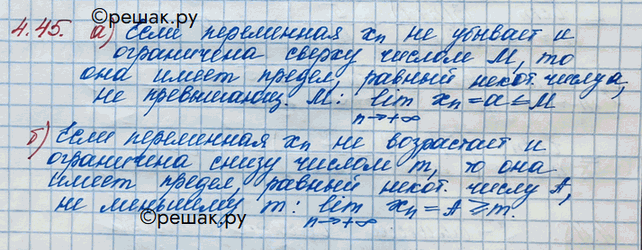 ©решак.ру
4.45. а) Если переменная xₙ не убывает и
ограничена сверху числом M, то
она имеет предел, равный некот. числу a,
не превышающ. M: lim xₙ = a ≤ M
n→+∞
б) Если переменная xₙ не возрастает и
ограничена снизу числом m, то она
имеет предел, равный некот. числу A,
не меньшему m: lim xₙ = A ≥ m.
n→+∞
©решак.ру